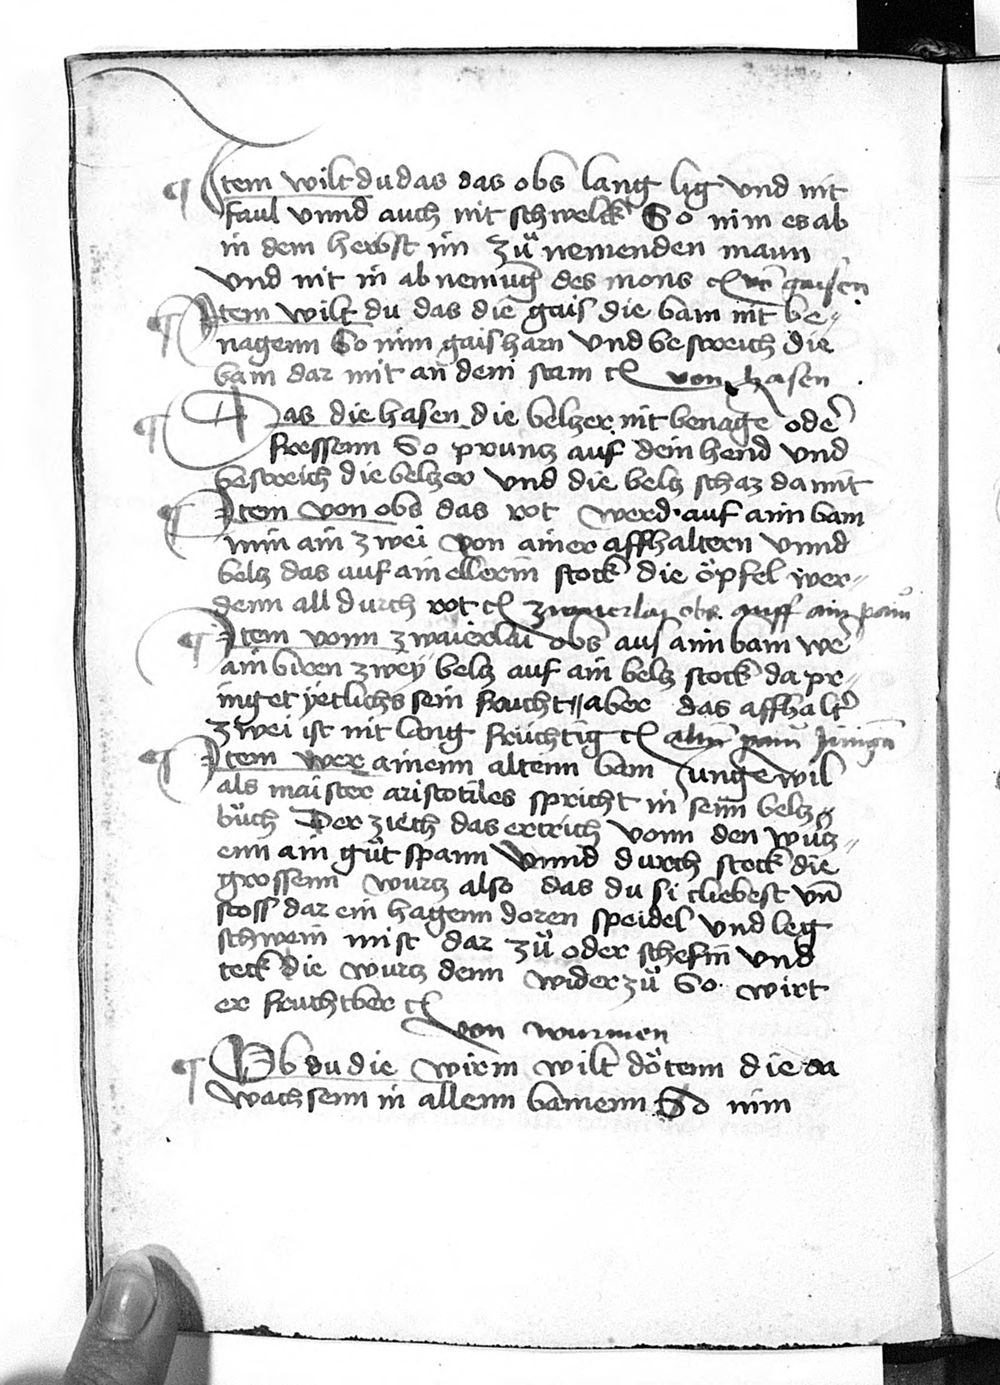 ¶ Item wilt du das das obs lang lig vnd nit
faul vnnd auch nit schwelck So nim es ab
in dem herbst im zů nemenden maun
vnd nit in ab nemūg des mons vō gaisen
¶ Item wilt du das die gais die bam nit be⸗
nagenn So nim gaisharn vnd bestreich die
bam dar mit an dem stam von hasen
¶ Das die hasen die belzer nit benage oder
fressenn So pruntz auf dein hend vnd
bestreich die belzer vnd die beltz schaz da mit
¶ Item von obs das rot werd auf aim bam
nim ain zwei von ainer affhaltern vnnd
beltz das auf ain ellerin stock die öpfel wer⸗
denn all durch rot zwaierlay obs auff ain pam
¶ Item vonn zwaierlai obs auf aim bam we
ain biren zwey beltz auf ain beltz stock da pr⸗
inget yetlichs sein frucht aber das affhalter
zwei ist nit lang früchtig altn pam Jungn
¶ Item wer ainenn altenn bam Jungē wil
als maister aristotiles spricht in seim beltz
bůch Der ziech das ertrich vonn den wurtz⸗
enn ain gůt spann vnnd durch stock die
grossenn wurtz also das du si cliebest vnd
stoss dar ein hagenn doren speidel vnd leg
schwein mist dar zů oder schefin vnd
teck die wurtz denn wider zů So wirt
er fruchtber
von wurmen
¶ Ob du die wirm wilt dötenn die da
wachsenn in allenn bamenn So nim